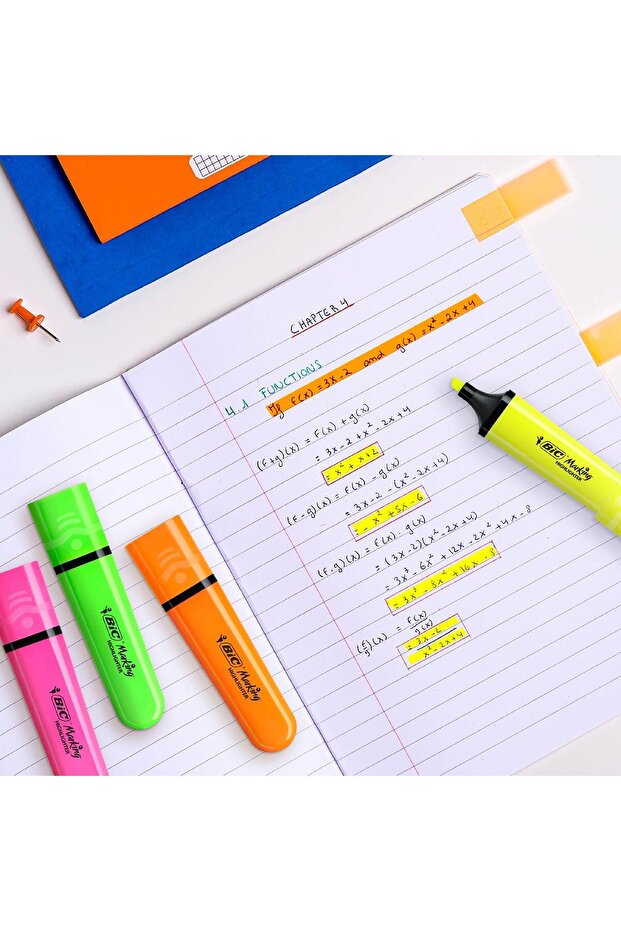 CHAPTER 4
4.1 FUNCTIONS
If f(x) = 3x - 2 and g(x) = x² - 2x + 4
(f+g)(x) = f(x) + g(x)
= 3x - 2 + x² - 2x + 4
= x² + x + 2
(f-g)(x) = f(x) - g(x)
= 3x - 2 - (x² - 2x + 4)
= - x² + 5x - 6
(f.g)(x) = f(x) . g(x)
= (3x - 2)(x² - 2x + 4)
= 3x³ - 6x² + 12x - 2x² + 4x - 8
= 3x³ - 8x² + 16x - 8
(f/g)(x) = f(x)/g(x)
= 3x - 2
x² - 2x + 4
BiC Marking
HIGHLIGHTER
BiC Marking
HIGHLIGHTER
BiC Marking
HIGHLIGHTER
BiC Marking
HIGHLIGHTER